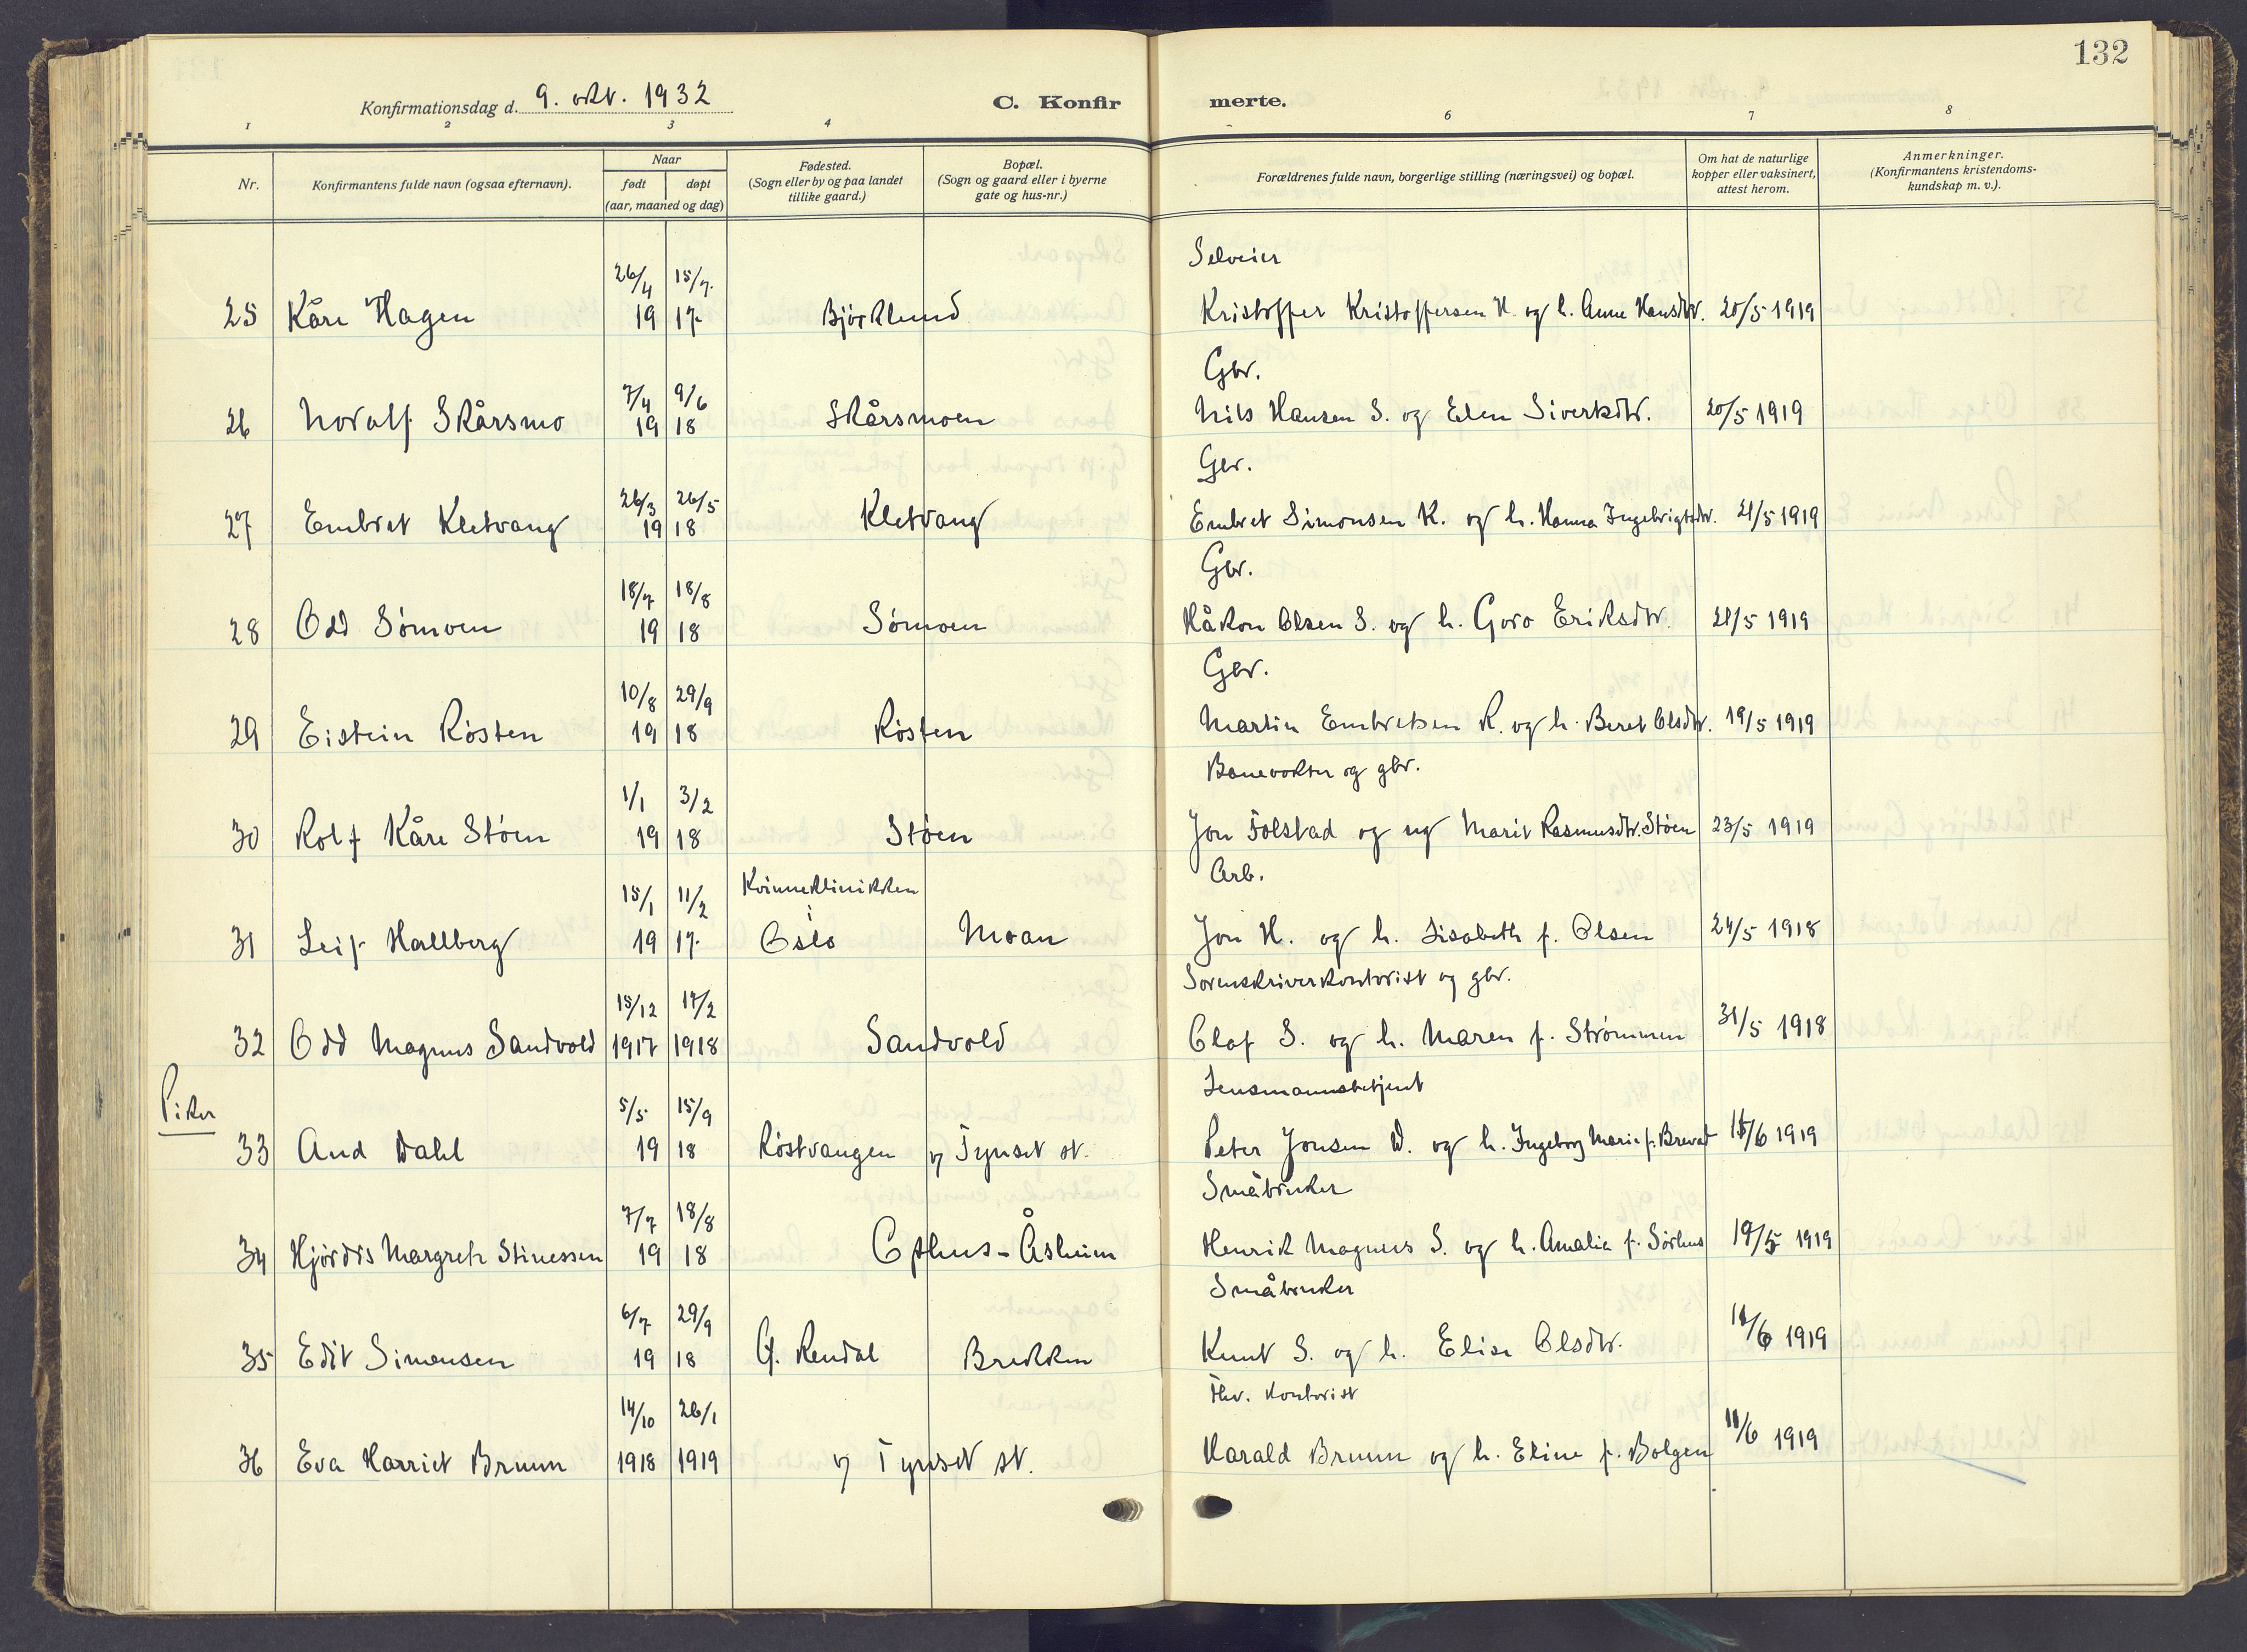 132
Konfirmationsdag d. 9. okt. 1932
C. Konfirmerte.
1 2 3 4 6 7 8
Nr.
Konfirmantens fulde navn (ogsaa efternavn).
Naar
født døpt
(aar, maaned og dag)
Fødested.
(Sogn eller by og paa landet
tillike gaard.)
Bopæl.
(Sogn og gaard eller i byerne
gate og hus-nr.)
Forældrenes fulde navn, borgerlige stilling (næringsvei) og bopæl.
Om hat de naturlige
kopper eller vaksinert,
attest herom.
Anmerkninger.
(Konfirmantens kristendoms-
kundskap m. v.).
26/4 15/7 Selveier
25 Kåre Hagen 19 17 Bjørklund Kristoffer Kristoffersen H. og h. Anne Hansdtr. 20/5 1919
7/4 9/6 Gbr.
26 Norolf Skårsmo 19 18 Skårsmoen Nils Hansen S. og Elen Siverksdtr. 20/5 1919
26/3 26/5 Gbr.
27 Embret Kletvang 19 18 Kletvang Embret Simonsen K. og h. Hanna Ingebrigtsdtr. 21/5 1919
18/7 18/8 Gbr.
28 Odd Sømoen 19 18 Sømoen Håkon Olsen S. og h. Goro Eriksdtr. 21/5 1919
10/8 29/9 Gbr.
29 Eistein Røsten 19 18 Røsten Martin Embretsen R. og h. Beret Olsdtr. 19/5 1919
1/1 3/2 Banevokter og gbr.
30 Rolf Kåre Støen 19 18 Støen Jon Tolstad og ug Marit Rasmusdtr. Støen 23/5 1919
15/1 11/2 Kvinneklinikken Arb.
31 Leif Hallberg 19 17 i Oslo Moan Jon H. og h. Lisabeth f. Olsen 24/5 1918
15/12 17/2 Sorenskriverkontorist og gbr.
32 Odd Magnus Sandvold 1917 1918 Sandvold Olaf S. og h. Maren f. Strømmen 31/5 1918
Piker
5/5 15/9 Lensmannsbetjent
33 Aud Dahl 19 18 Røstvangen v/ Tynset st. Peter Jonsen D. og h. Ingeborg Marie f. Brevad /6 1919
7/7 18/8 Småbruker
34 Hjørdis Margrete Stinessen 19 18 Ophus-Åsheim Henrik Magnus S. og h. Amalia f. Sørhus 19/5 1919
6/7 29/9 Småbruker
35 Edit Simonsen 19 18 Ø. Rendal Brekken Knut S. og h. Elise Olsdtr. /6 1919
14/10 26/1 Fhv. kontorist
36 Eva Harriet Bruun 1918 1919 v/ Tynset st. Harald Bruun og h. Eline f. Bolgen 11/6 1919